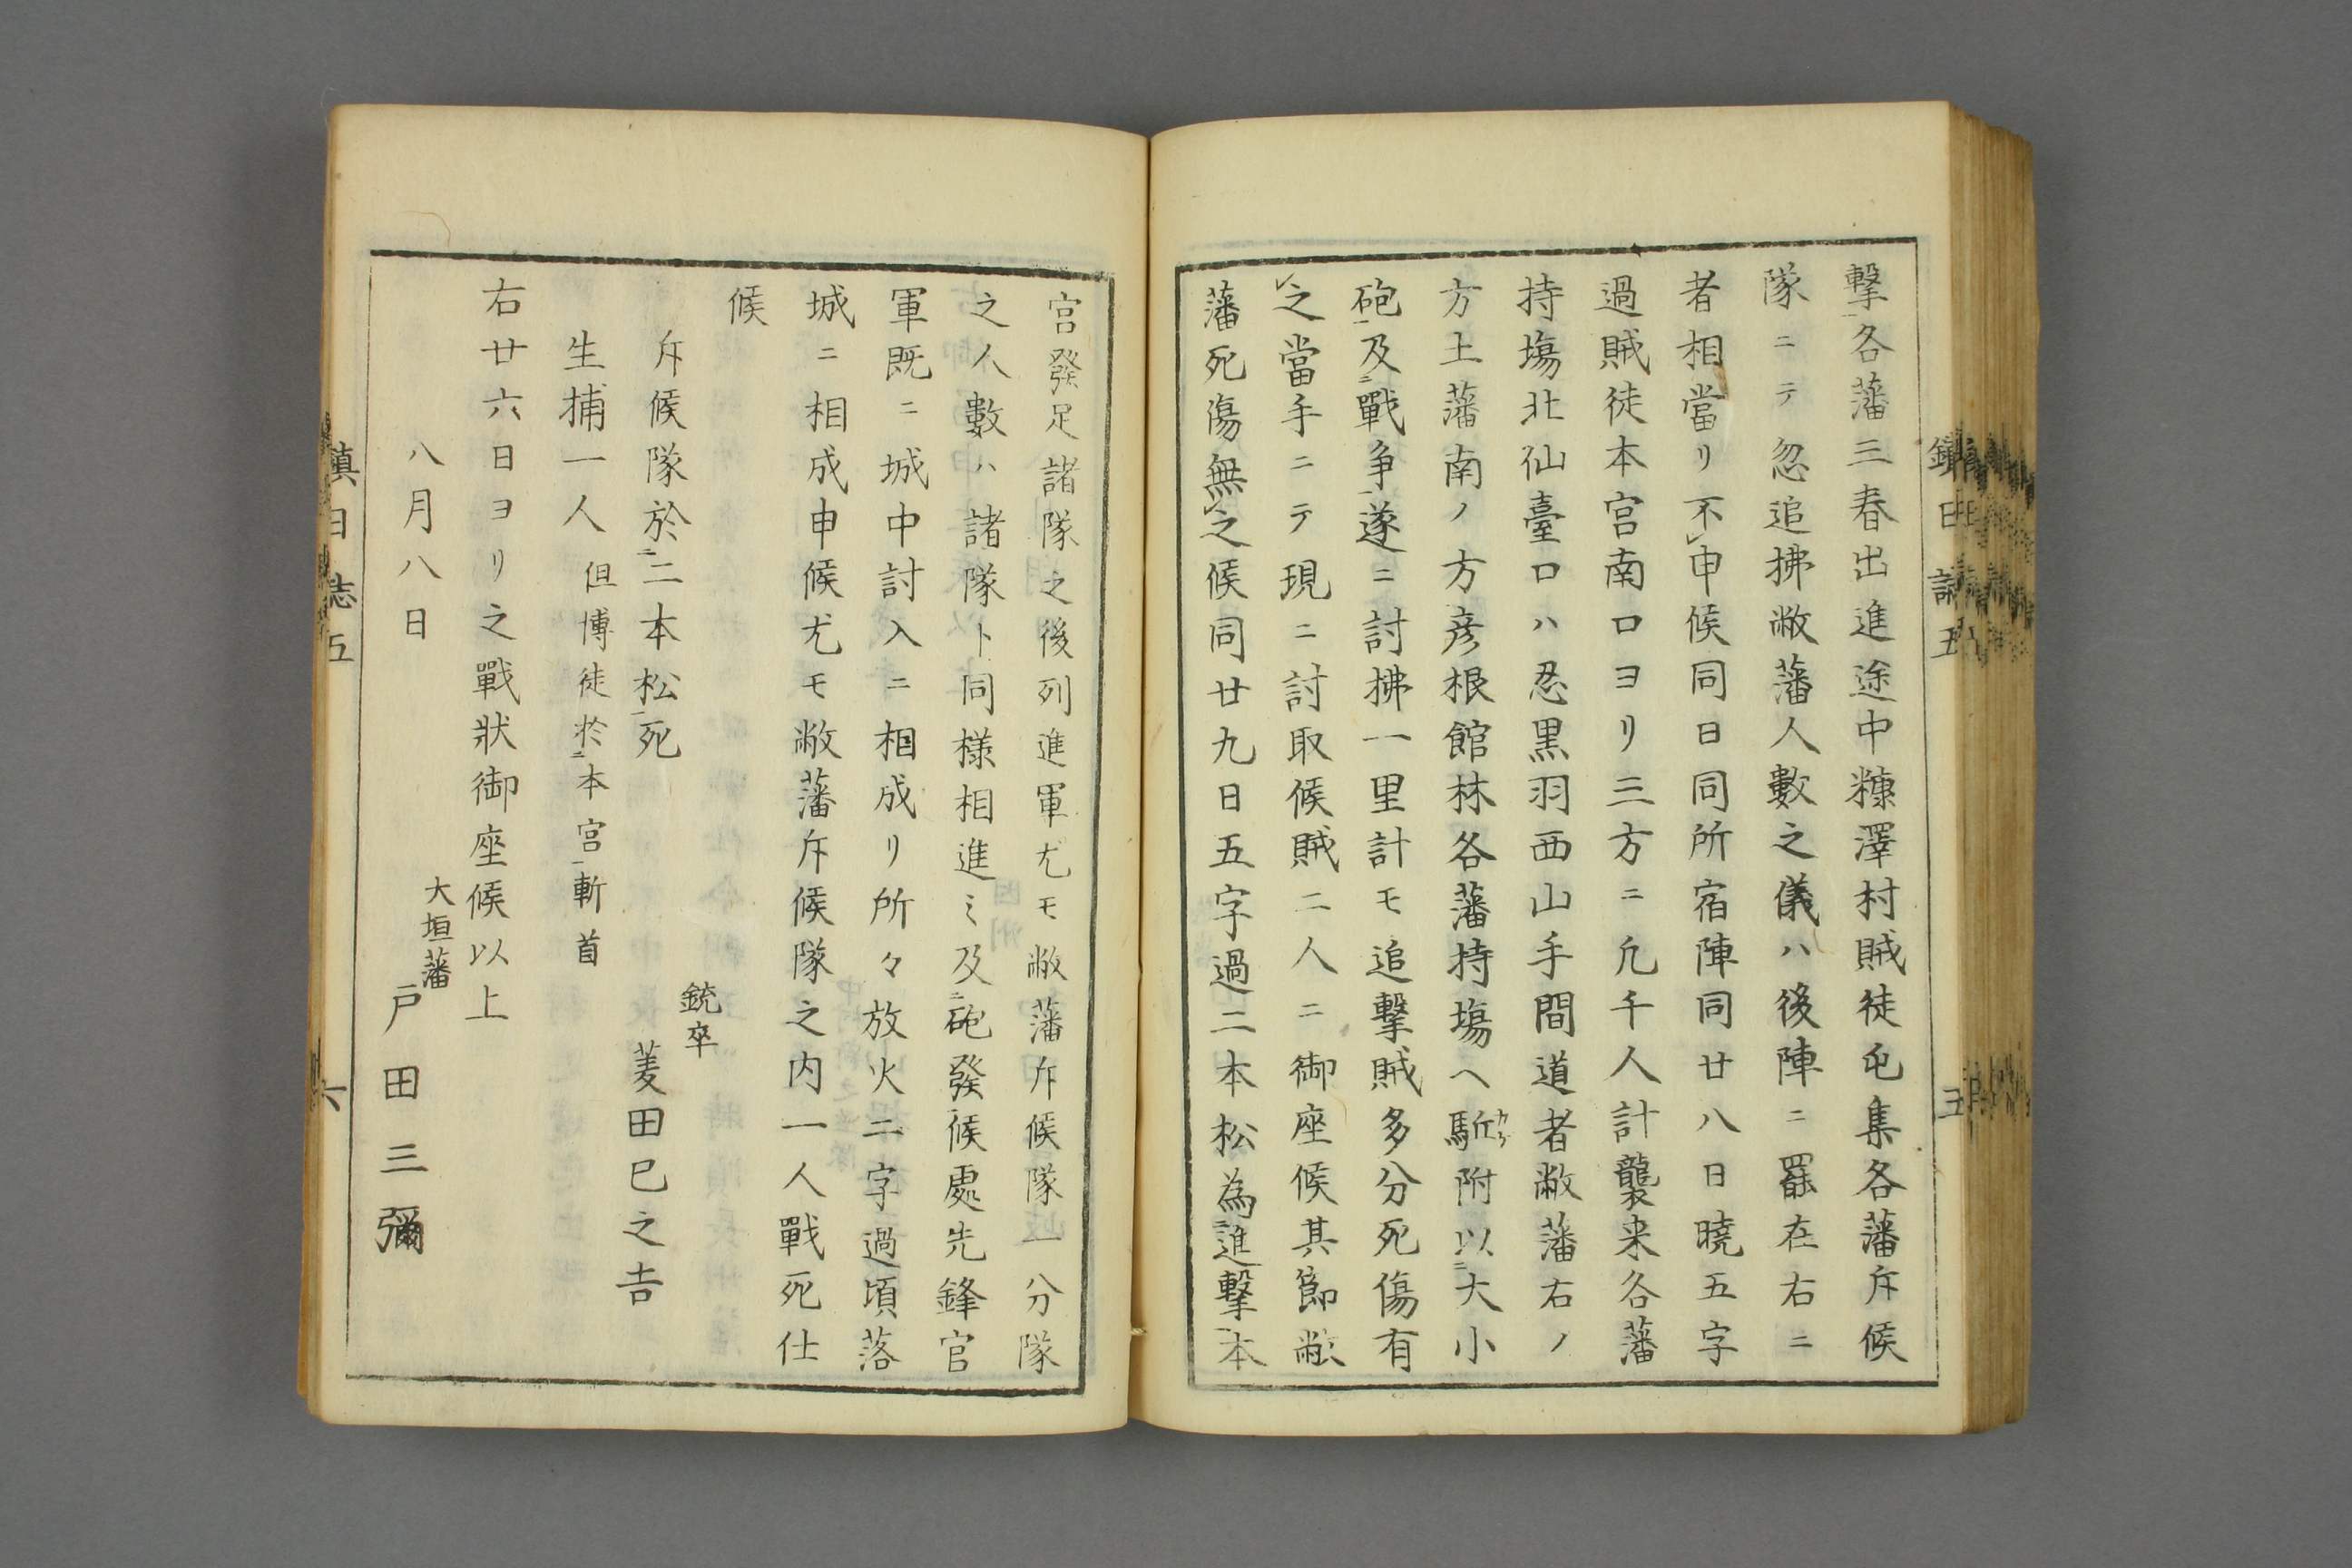 撃一各藩三春出進途中糠澤村賊徒屯集各藩斥候
隊ニテ忽追拂敝藩人數之儀ハ後陣ニ罷在右ニ
者相當リ不レ申候同日同所宿陣同廿八日曉五字
過賊徒本宮南口ヨリ三方ニ凡千人計襲来各藩
持塲北仙臺口ハ忍黒羽西山手間道者敝藩右ノ
方土藩南ノ方彦根館林各藩持塲ヘ駈附以二大小
砲一及二戰争一遂ニ討拂一里計モ追撃賊多分死傷有
レ之當手ニテ現ニ討取候賊二人ニ御座候其節敝
藩死傷無レ之候同廿九日五字過二本松為二進撃一本
宮發足諸隊之後列進軍尤モ敝藩斥候隊一分隊
之人數ハ諸隊ト同様相進ミ及二砲發一候處先鋒官
軍既ニ城中討入ニ相成リ所々放火二字過頃落
城ニ相成申候尤モ敝藩斥候隊之内一人戰死仕
候
斥候隊於二二本松一死
銃卒
菱田巳之吉
生捕一人 但博徒於二本宮一斬首
右廿六日ヨリ之戰狀御座候以上
八月八日
大垣藩
戸田三彌
鎮日志五
六